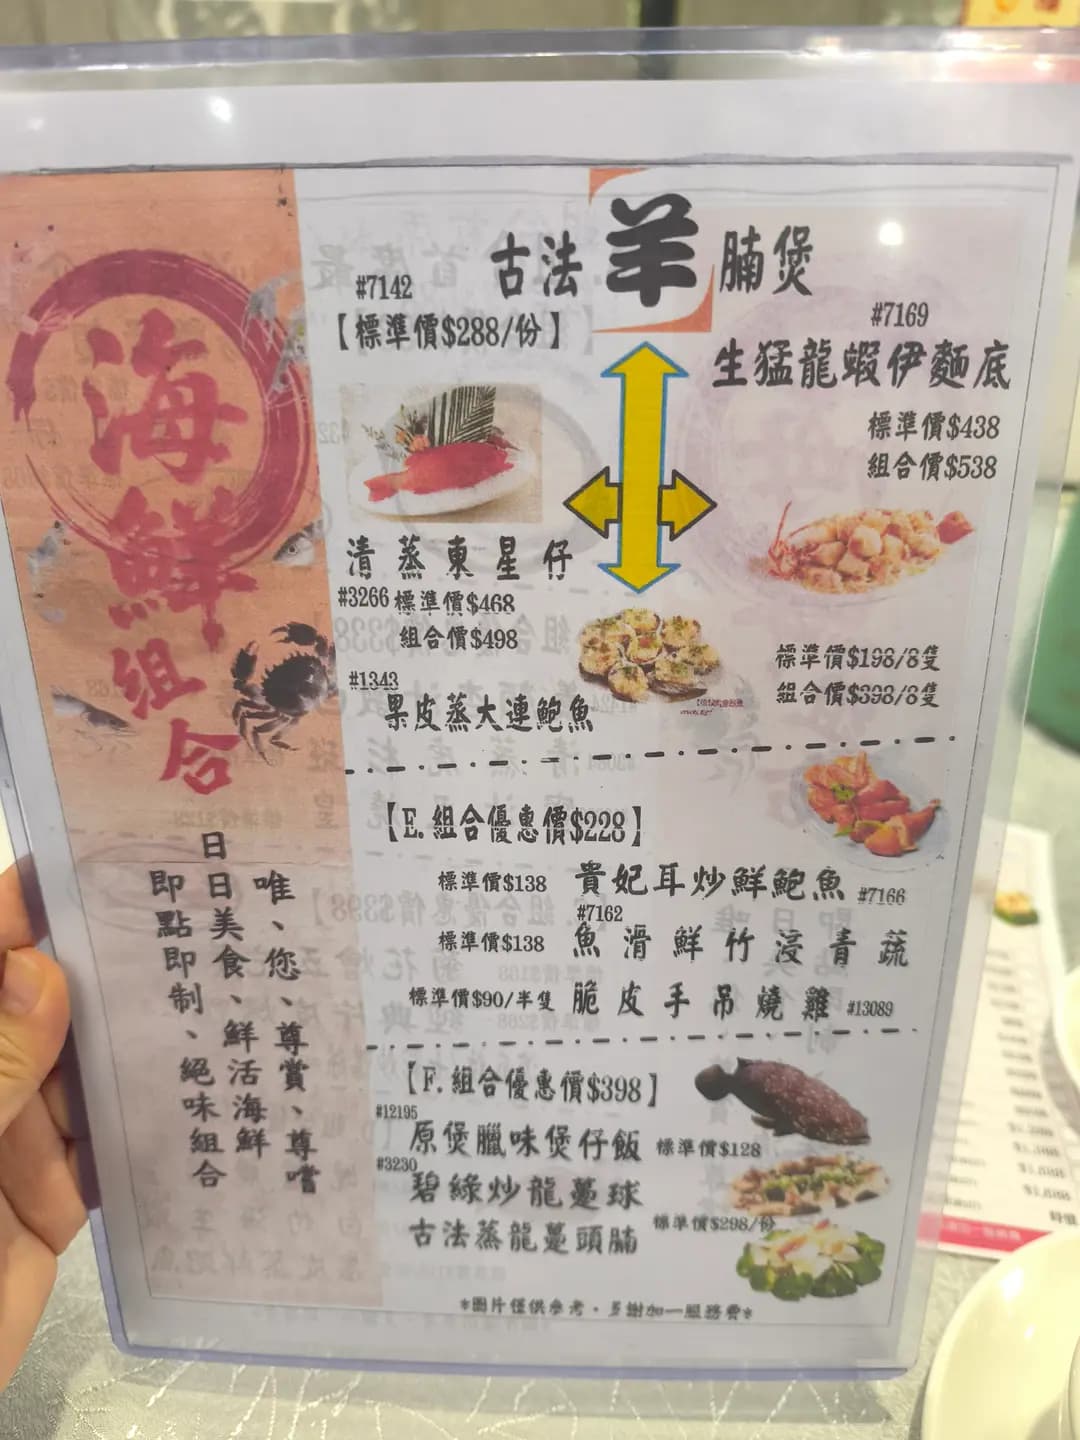 海鮮組合
日日美食、鮮活海鮮
唯、您、尊賞、尊嚐
即點即制、絕味組合
古法羊腩煲
#7142
【標準價$288/份】
#7169
生猛龍蝦伊麵底
標準價$438
組合價$538
清蒸東星仔
#3266 標準價$468
組合價$498
#1343
果皮蒸大連鮑魚
標準價$198/8隻
組合價$398/8隻
【E.組合優惠價$228】
標準價$138 貴妃耳炒鮮鮑魚 #7166
#7162
標準價$138 魚滑鮮竹浸青蔬
標準價$90/半隻 脆皮手吊燒雞 #13089
【F.組合優惠價$398】
#12195
原煲臘味煲仔飯 標準價$128
#3230
碧綠炒龍躉球
標準價$298/份
古法蒸龍躉頭腩
*圖片僅供參考，多謝加一服務費*